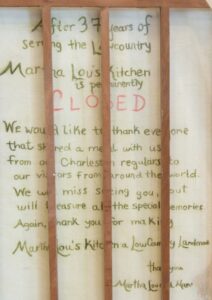 After 37 years of
serving the Lowcountry
Martha Lou's Kitchen
is permanently
CLOSED
We would like to thank everyone
that shared a meal with us
from our Charleston regulars to
our visitors from around the world.
We will miss seeing you, but
will treasure all the special memories.
Again, thank you for making
Martha Lou's Kitchen a LowCountry Landmark
thank you
Martha Lou